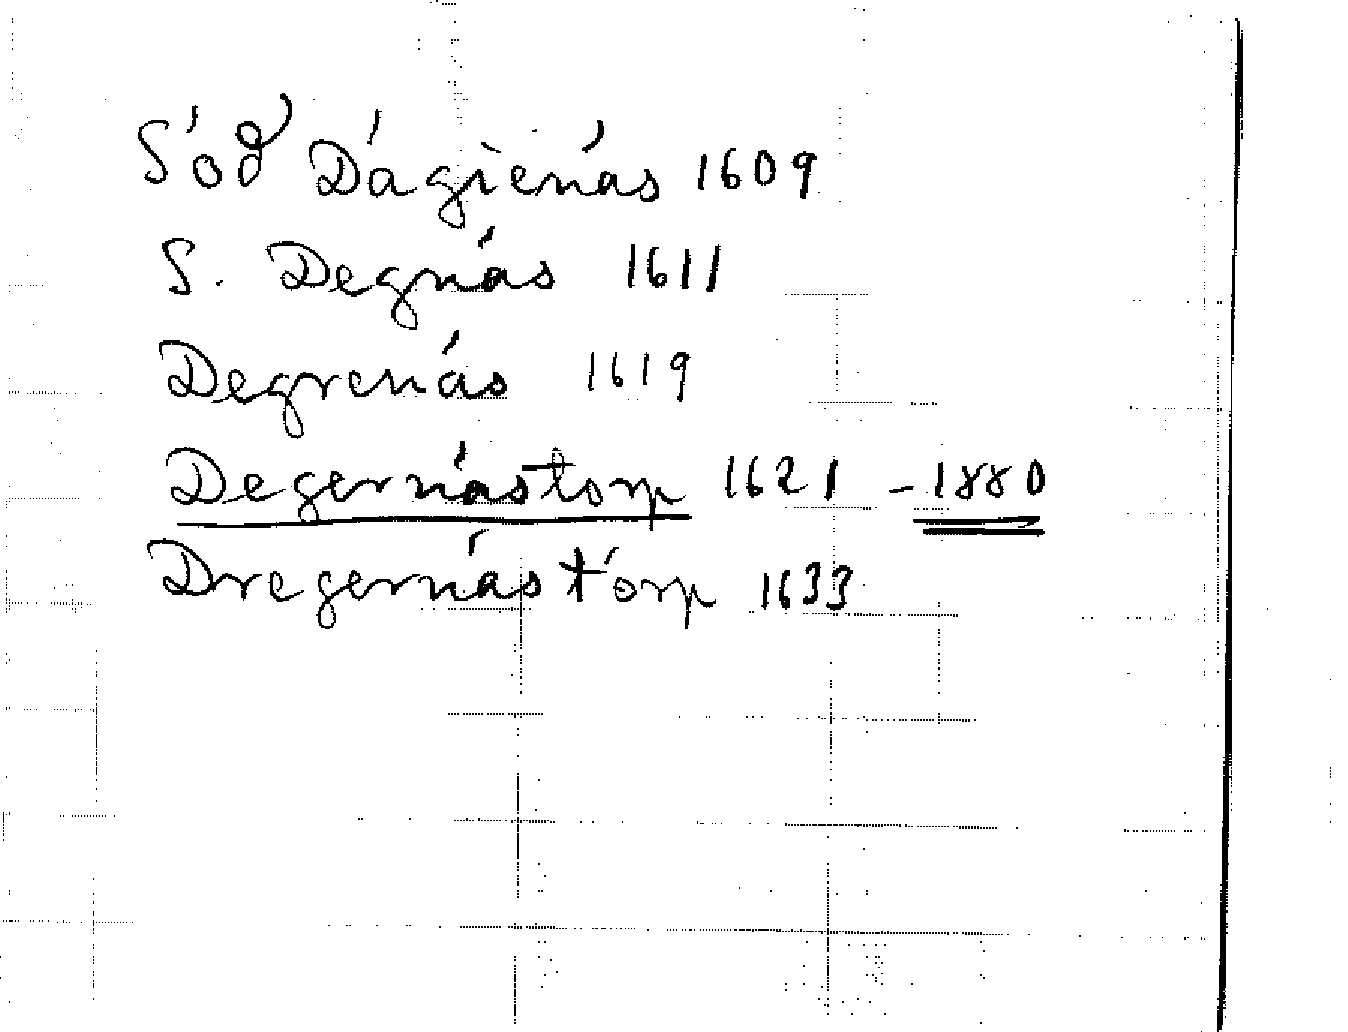 Sód Dágienás 1609
S. Degnás 1611
Degrenás 1619
Degernástorp 1621 - 1880
Dregernás tórp 1633